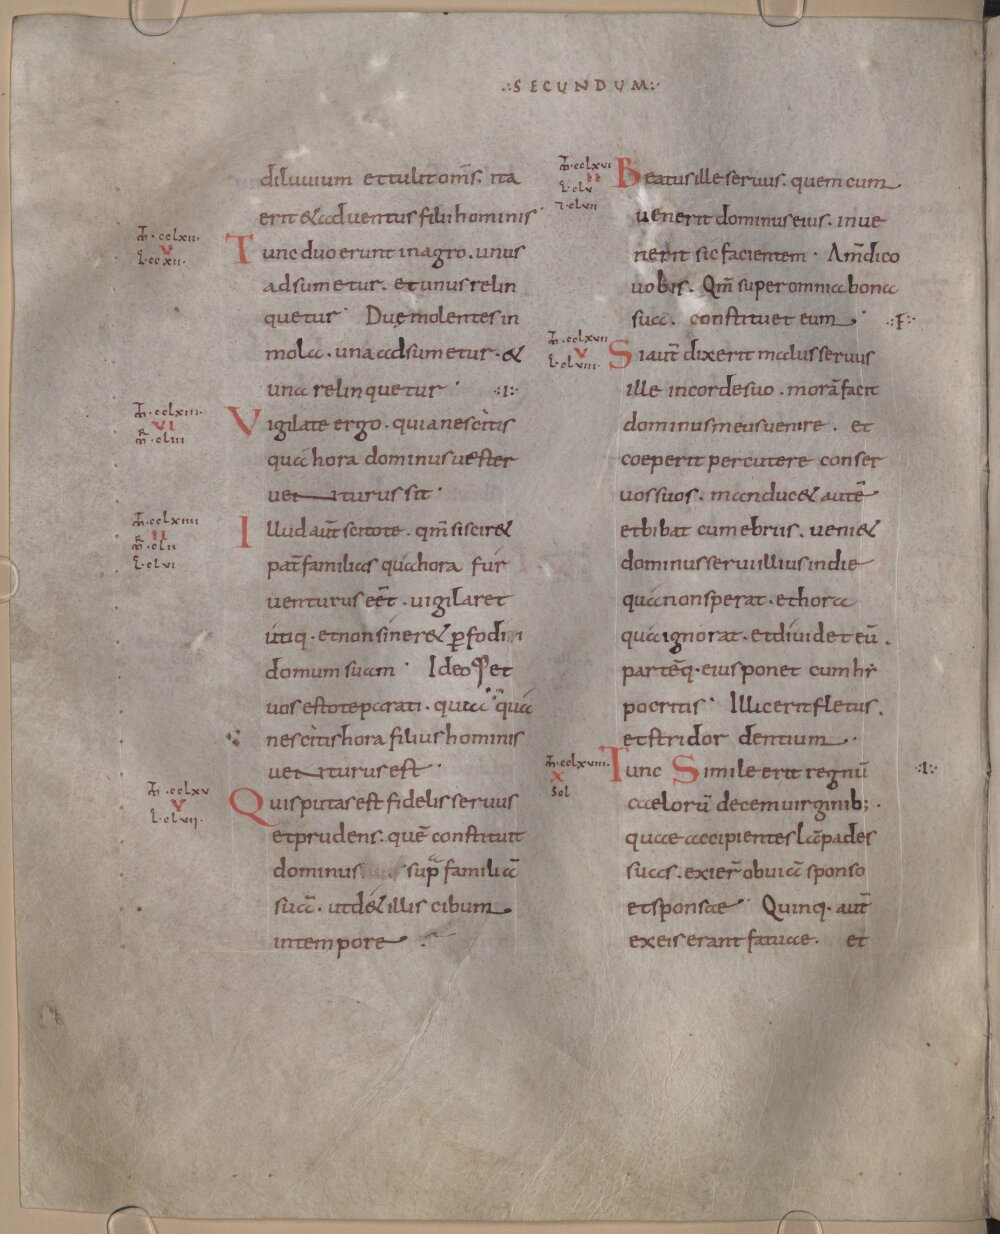 .:SECUNDUM:.
diluuium et tulit om̄s. ita
erit & aduentus filii hominis
Ⲙ̄·cclxii·
v
L·ccxii·
Tunc duo erunt in agro. unus
adsumetur. et unus relin
quetur· Duę molentes in
mola. una adsumetur. &
una relinquetur· ·:I:·
Ⲙ̄·cclxiii·
VI
m̄R·cliii
Vigilate ergo. quia nescitis
qua hora dominus uester
uenturus sit·
Ⲙ̄·cclxiiii
II
m̄R·clii
L·clvi
Illud aut̄ scitote. qm̄ si scir&
pat̄ familias qua hora fur
uenturus eēt. uigilaret
utiq· et non siner& ꝑfodi
domum suam· Ideoq et
uos estote parati. quia qua
nescitis hora filius hominis
uenturus est·
Ⲙ̄·cclxv
V
L·clvii·
Quis putas est fidelis seruus
et prudens. quē constituit
dominus sup̄a familiā
suā. ut d& illis cibum
in tempore.
Ⲙ̄·cclxvi
II
L·clv
7·clvii
Beatus ille seruus. quem cum
uenerit dominus eius. inue
nerit sic facientem· Am̄ dico
uobis. Qm̄ super omnia bona
sua. constituet eum·
Ⲙ̄·cclxvii
V
L·clviii·
Si aut̄ dixerit malus seruus
ille in corde suo. morā facit
dominus meus uenire. et
coeperit percutere conser
uos suos. manduc& autē
et bibat cum ebriis. ueni&
dominus serui illius in die
qua non sperat. et hora
qua ignorat. et diuidet eū.
partēq· eius ponet cum hy
pocritis· Illic erit fletus.
et stridor dentium·
Ⲙ̄·cclxviii·
X
Sol
Tunc Simile erit regnū ·:I:·
caelorū decem uirginib;·
quae accipientes lāpades
suas. exier̄ obuiā sponso
et sponsae· Quinq· aut̄
ex eis erant fatuae. et